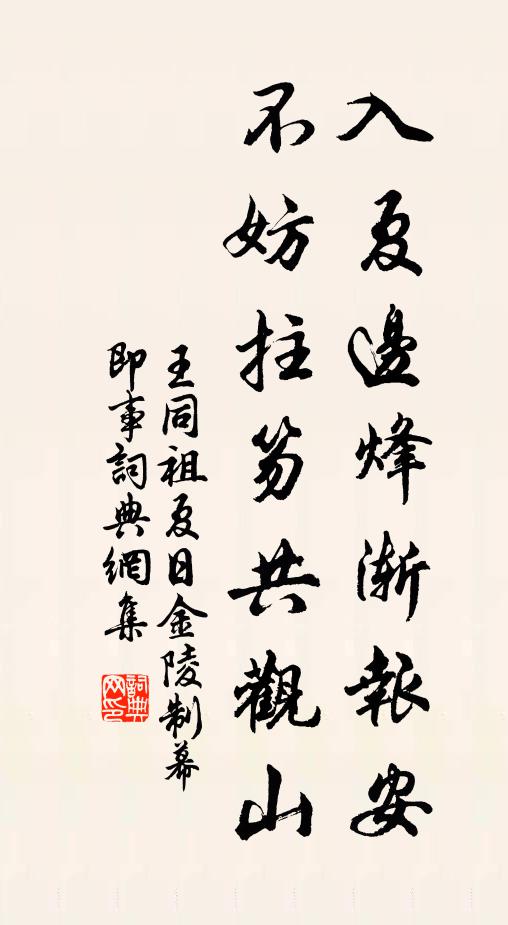 入夏邊烽漸報安
不妨拄笏共觀山
王同祖夏日金陵制幕
即事詞典網集
詞典
网印